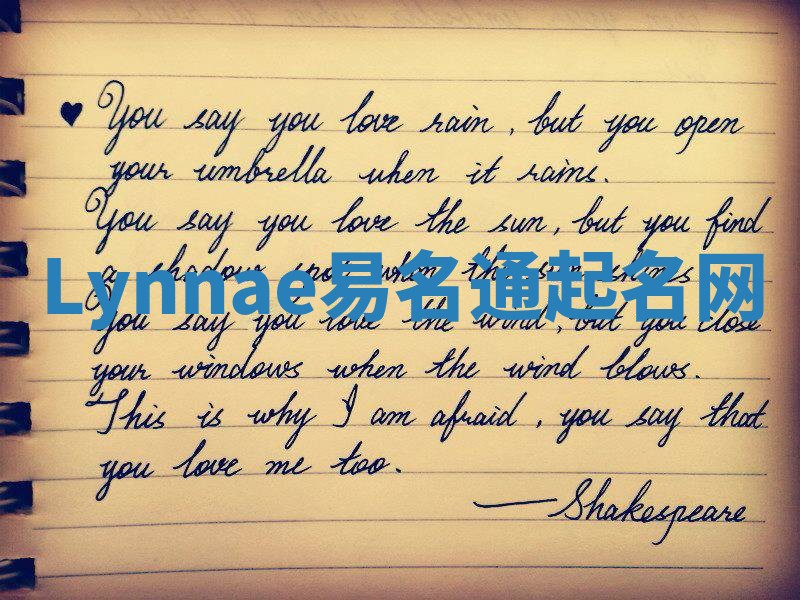 You say you love rain, but you open
your umbrella when it rains.
You say you love the sun, but you find
a shadow spot when the sun shines
Lynnae易名通起名网
You say you love the wind, but you close
your windows when the wind blows.
This is why I am afraid, you say that
you love me too.
— Shakespeare